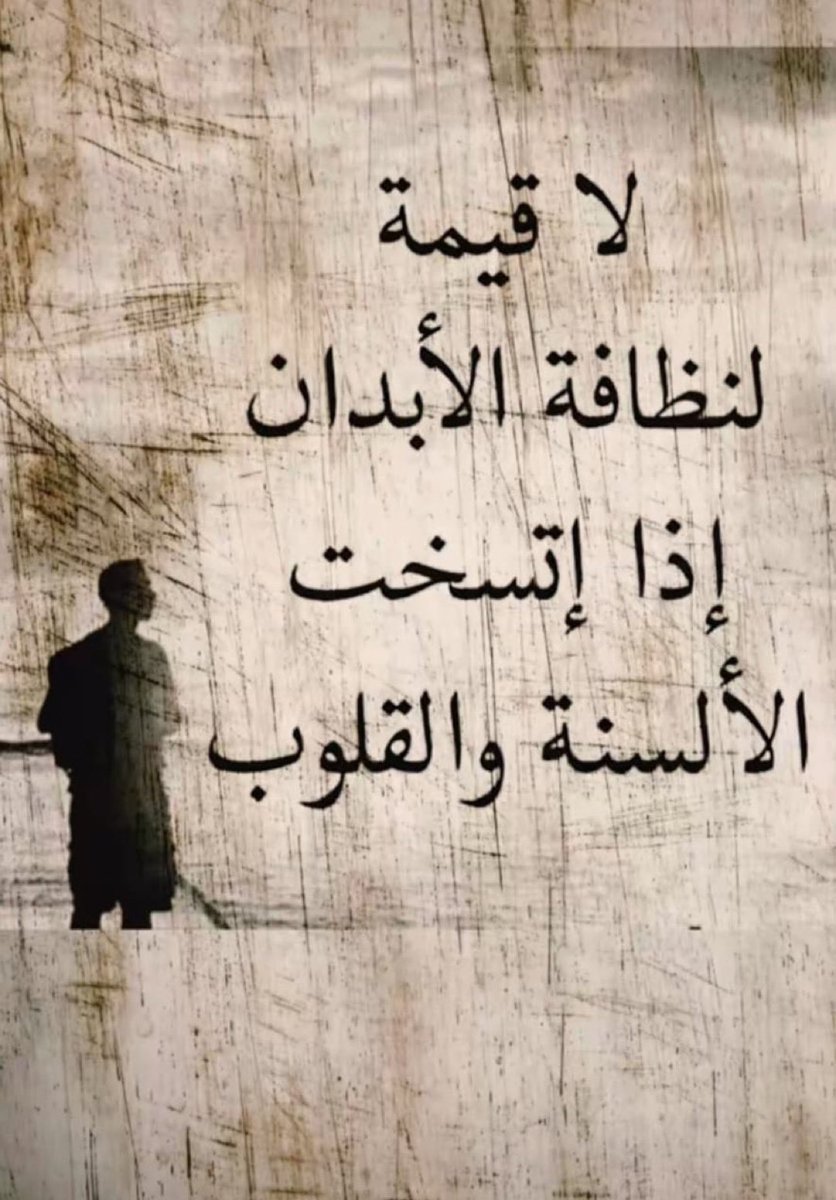 لا قيمة
لنظافة الأبدان
إذا إتسخت
الألسنة والقلوب